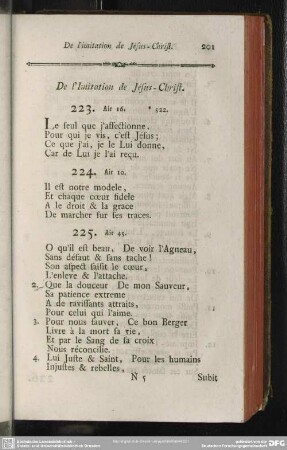 De l'imitation de Jésus-Christ. 201
De l'Imitation de Jésus-Christ.
223. Air 16. * 522.
Le seul que j'affectionne.
Pour qui je vis, c'est Jésus;
Ce que j'ai, je le Lui donne,
Car de Lui je l'ai reçu.
224. Air 10.
Il est notre modele,
Et chaque cœur fidele
A le droit & la grace
De marcher sur ses traces.
225. Air 45.
O qu'il est beau, De voir l'Agneau,
Sans défaut & sans tache!
Son aspect saisit le cœur,
L'enleve & l'attache.
2. Que la douceur De mon Sauveur,
Sa patience extreme
A de ravissants attraits,
Pour celui qui l'aime.
3. Pour nous sauver, Ce bon Berger
Livre à la mort sa vie,
Et par le Sang de sa croix
Nous réconcilie.
4. Lui Juste & Saint, Pour les humains
Injustes & rebelles,
N 5 Subit